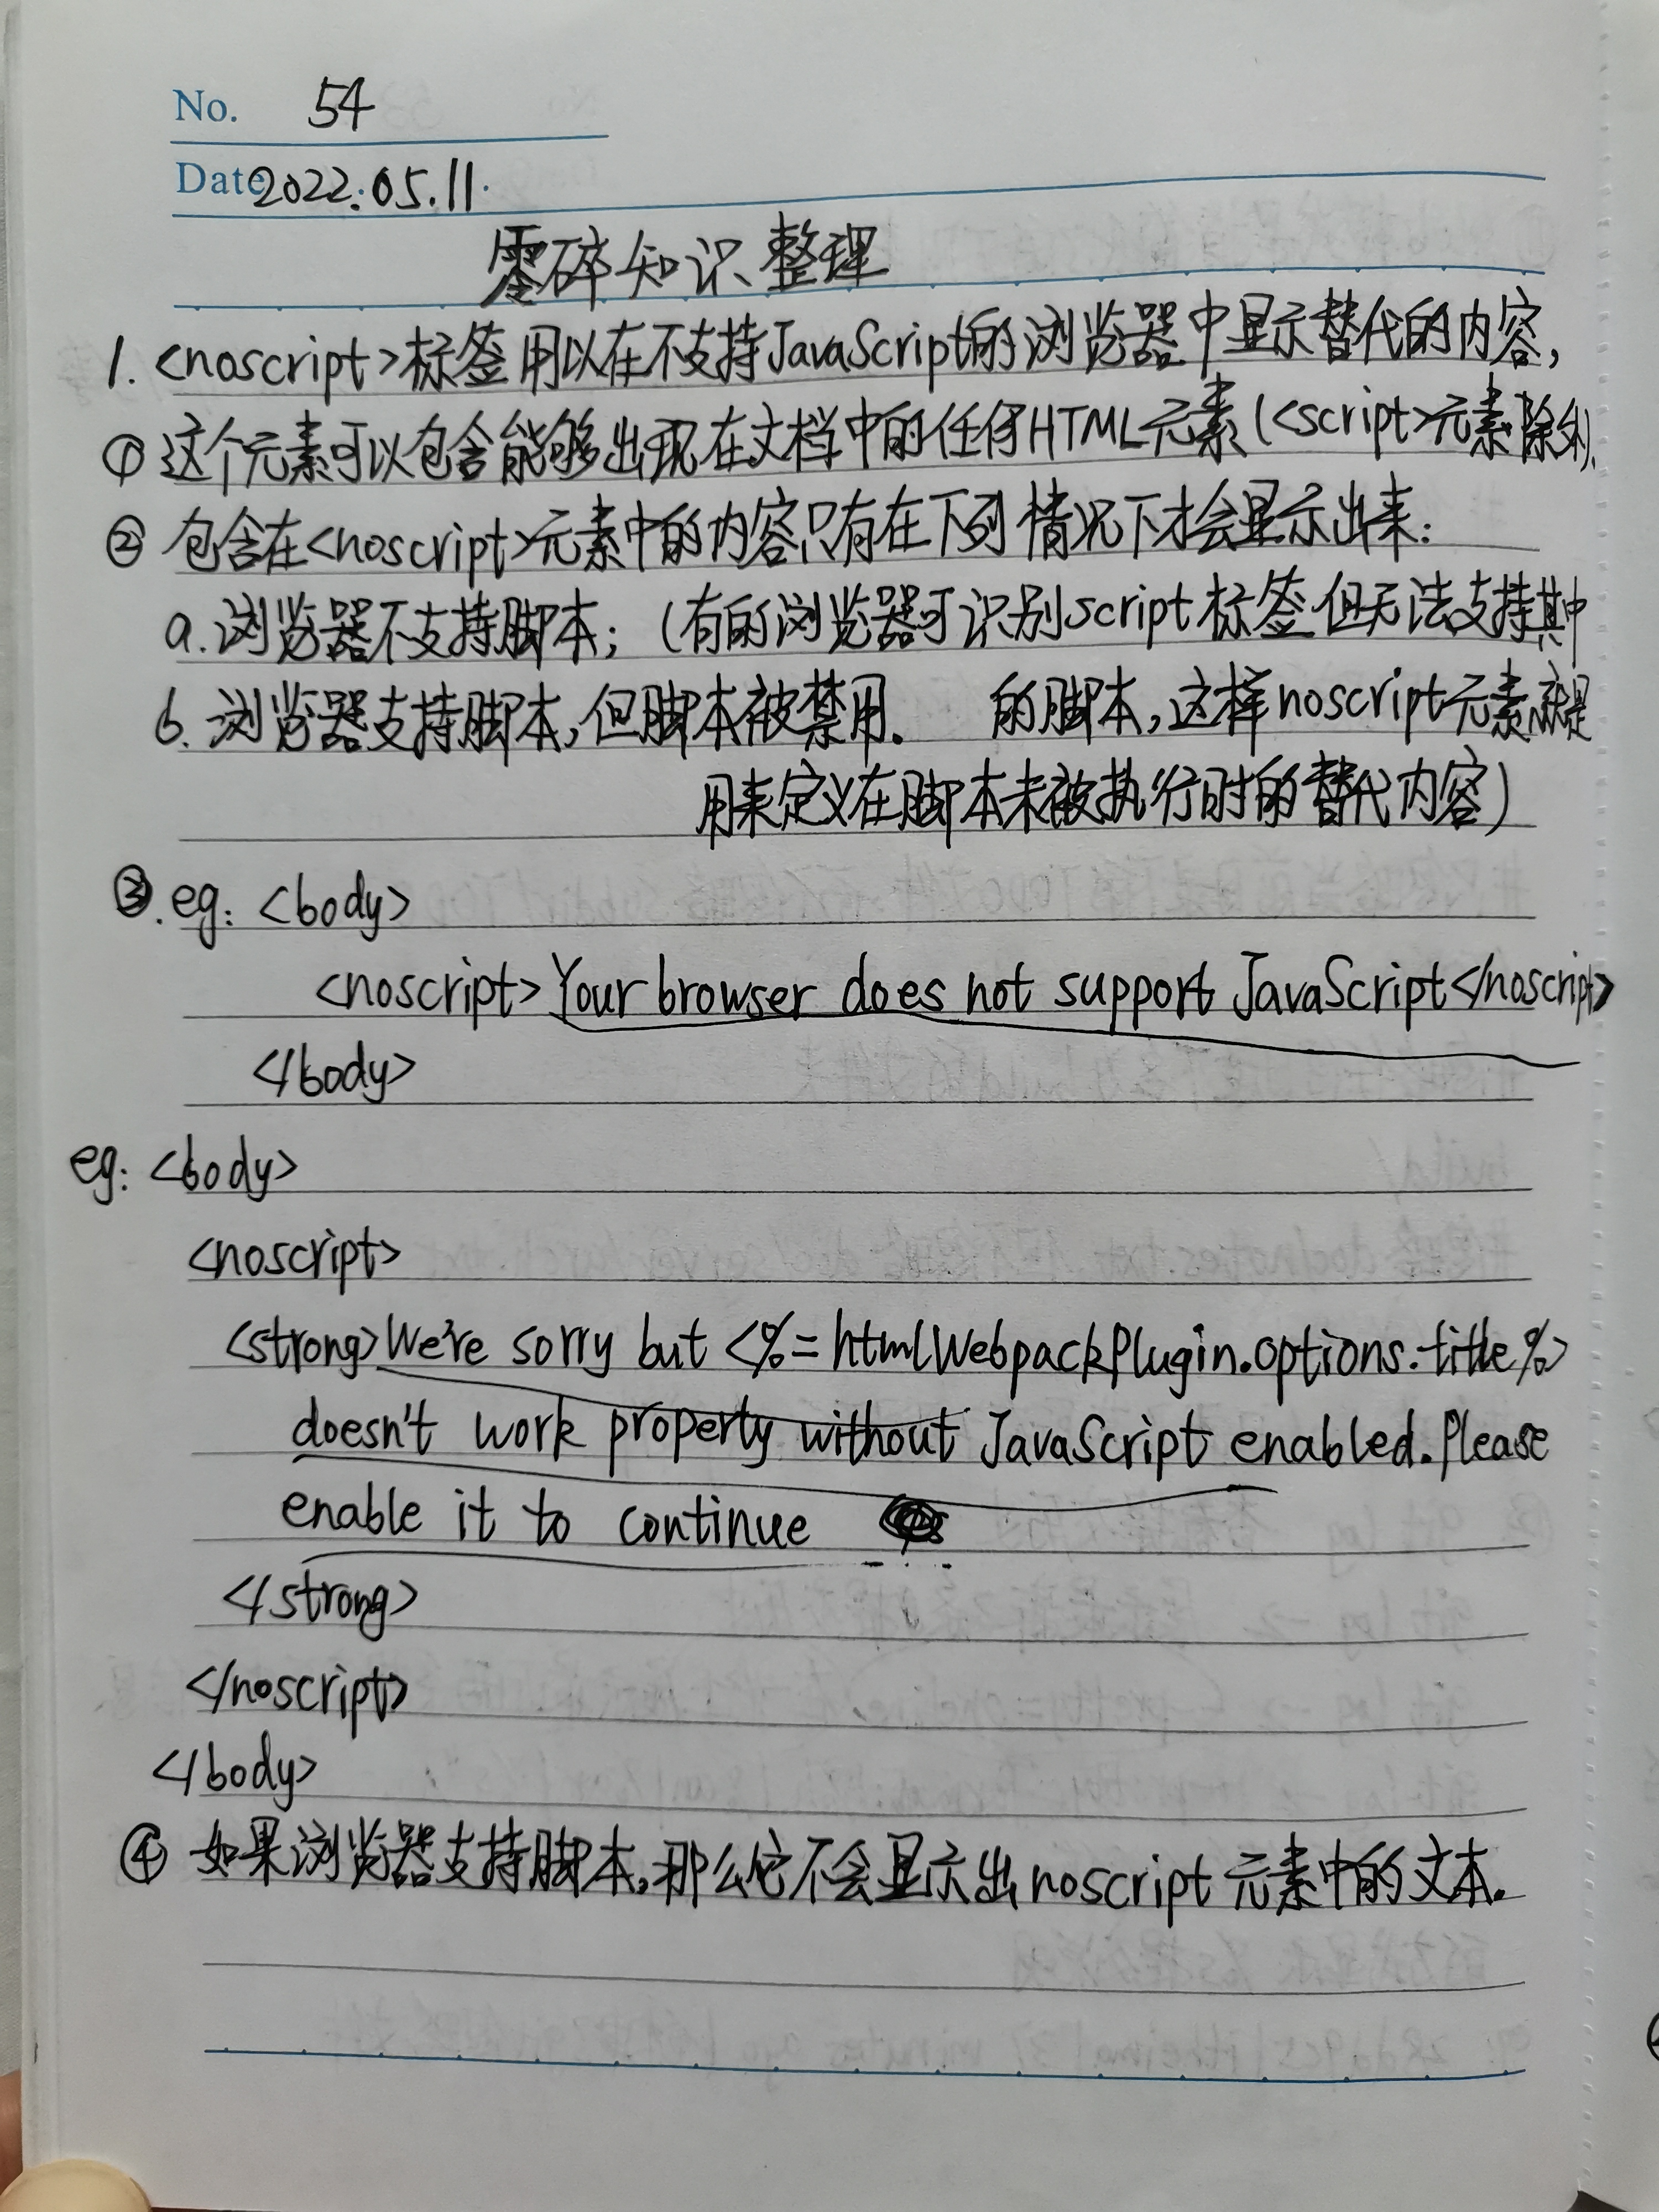 No. 54
Date 2022.05.11.
零碎知识整理
1. <noscript>标签用以在不支持JavaScript的浏览器中显示替代的内容,
① 这个元素可以包含能够出现在文档中的任何HTML元素(<script>元素除外).
② 包含在<noscript>元素中的内容只有在下列情况下才会显示出来:
a. 浏览器不支持脚本; (有的浏览器可识别script标签但无法支持其中
b. 浏览器支持脚本,但脚本被禁用. 的脚本,这样noscript元素就是
用来定义在脚本未被执行时的替代内容)
③. eg: <body>
<noscript>Your browser does not support JavaScript</noscript>
</body>
eg: <body>
<noscript>
<strong>We're sorry but <%= htmlWebpackPlugin.options.title%>
doesn't work property without JavaScript enabled. Please
enable it to continue
</strong>
</noscript>
</body>
④ 如果浏览器支持脚本,那么它不会显示出noscript元素中的文本.